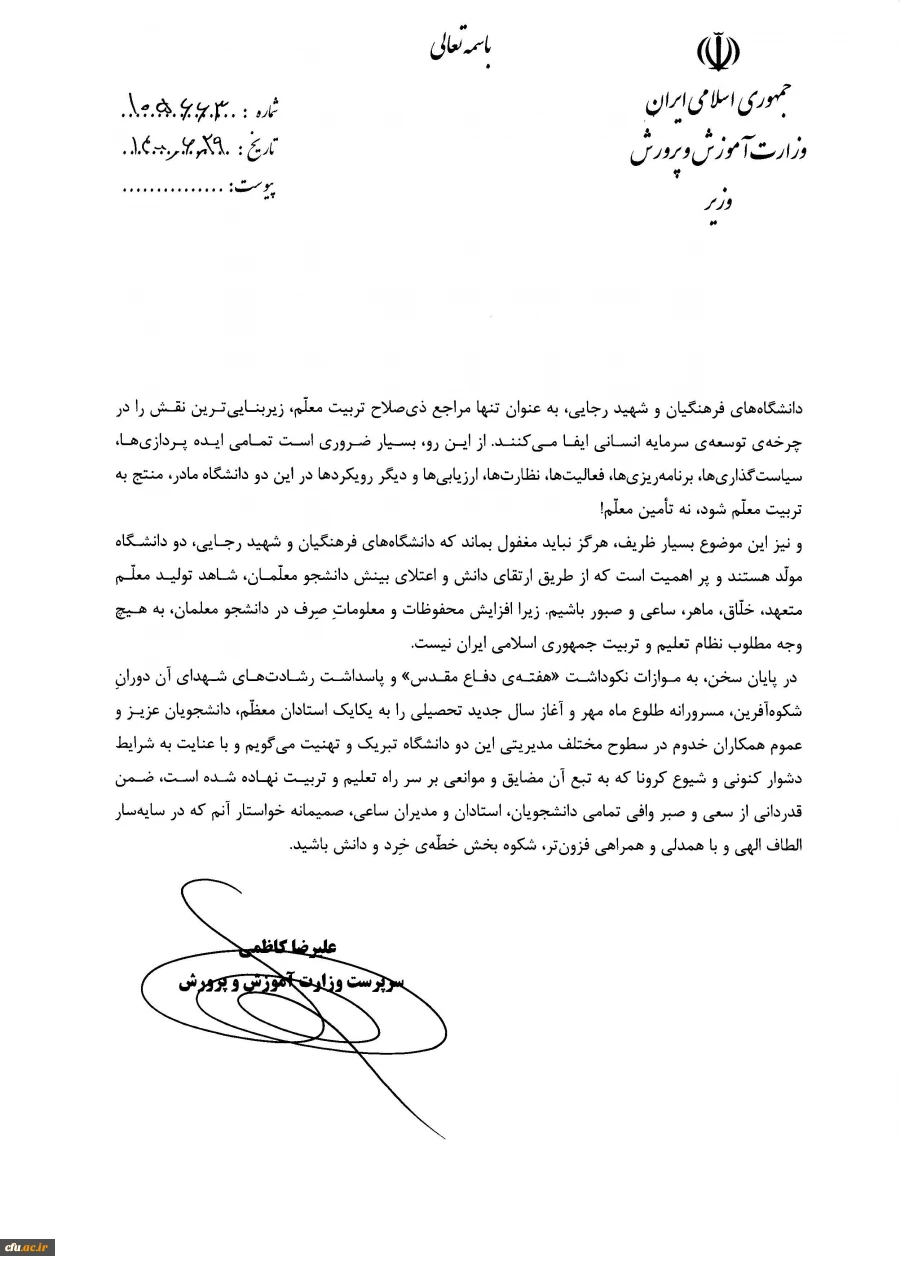 باسمه تعالی
جمهوری اسلامی ایران
وزارت آموزش و پرورش
وزیر
شماره : ۱۰۵۶۶۳
تاریخ : ۱۴۰۰٫۶٫۲۹
پیوست: ...............
دانشگاه‌های فرهنگیان و شهید رجایی، به عنوان تنها مراجع ذی‌صلاح تربیت معلّم، زیربنایی‌ترین نقش را در
چرخه‌ی توسعه‌ی سرمایه انسانی ایفا می‌کنند. از این رو، بسیار ضروری است تمامی ایده پردازی‌ها،
سیاست‌گذاری‌ها، برنامه‌ریزی‌ها، فعالیت‌ها، نظارت‌ها، ارزیابی‌ها و دیگر رویکردها در این دو دانشگاه مادر، منتج به
تربیت معلّم شود، نه تأمین معلّم!
و نیز این موضوع بسیار ظریف، هرگز نباید مغفول بماند که دانشگاه‌های فرهنگیان و شهید رجایی، دو دانشگاه
مولّد هستند و پر اهمیت است که از طریق ارتقای دانش و اعتلای بینش دانشجو معلّمان، شاهد تولید معلّم
متعهد، خلّاق، ماهر، ساعی و صبور باشیم. زیرا افزایش محفوظات و معلوماتِ صِرف در دانشجو معلمان، به هیچ
وجه مطلوب نظام تعلیم و تربیت جمهوری اسلامی ایران نیست.
در پایان سخن، به موازات نکوداشت «هفته‌ی دفاع مقدس» و پاسداشت رشادت‌های شهدای آن دورانِ
شکوه‌آفرین، مسرورانه طلوع ماه مهر و آغاز سال جدید تحصیلی را به یکایک استادان معظّم، دانشجویان عزیز و
عموم همکاران خدوم در سطوح مختلف مدیریتی این دو دانشگاه تبریک و تهنیت می‌گویم و با عنایت به شرایط
دشوار کنونی و شیوع کرونا که به تبع آن مضایق و موانعی بر سر راه تعلیم و تربیت نهاده شده است، ضمن
قدردانی از سعی و صبر وافی تمامی دانشجویان، استادان و مدیران ساعی، صمیمانه خواستار آنم که در سایه‌سار
الطاف الهی و با همدلی و همراهی فزون‌تر، شکوه بخش خطّه‌ی خِرد و دانش باشید.
علیرضا کاظمی
سرپرست وزارت آموزش و پرورش
cfu.ac.ir